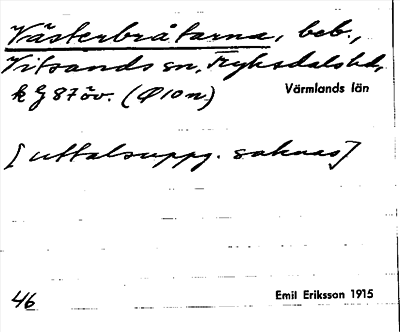 Västerbråtarna, beb.,
Vitsands sn, Fryksdals hd,
k G 87 öv. (Ø 10 n.)
Värmlands län
[uttalsuppg. saknas]
46
Emil Eriksson 1915